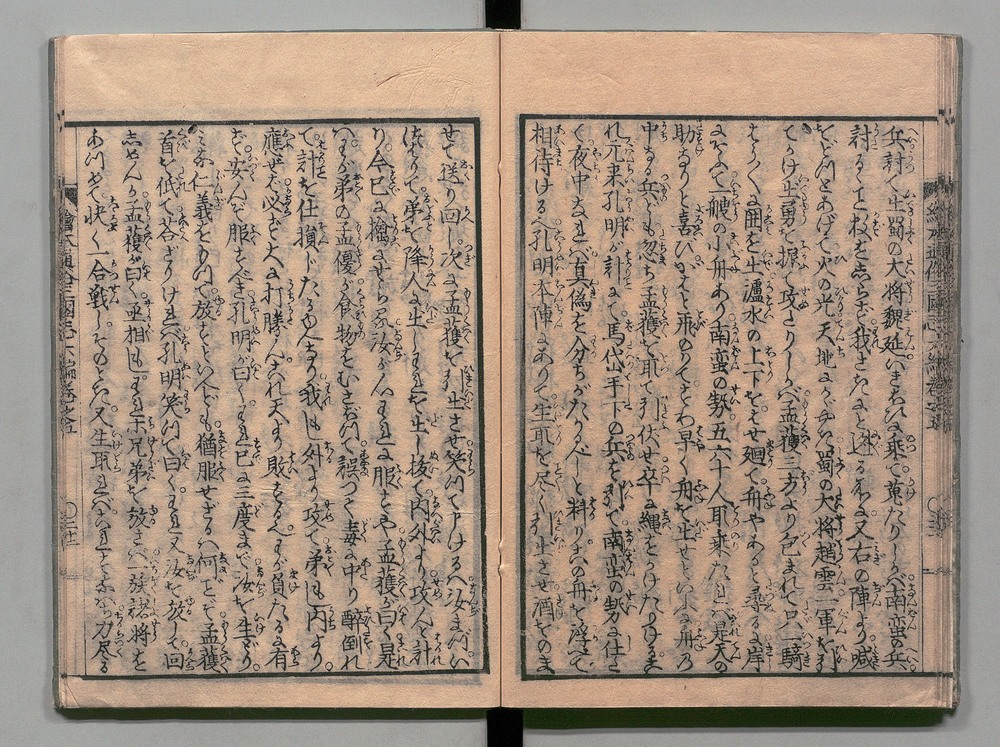 兵討て出蜀の大将魏延いきおひに乗て蒐たりしかバ南蛮の兵
討るゝこと数を志らず我さきにと迯る所に又右の陣より喊
をどつとあげて火の光天地にかゞやき蜀の大将趙雲一軍を引
てかけ出勇を振て攻さりしかバ孟獲三方より包まれて只一騎
やう〳〵に囲を出瀘水の上下をはせ廻て舟やあると尋るに岸
にそふて一艘の小舟あり南蛮の勢五六十人取乗たれバ是天の
助なりと喜びひらりと飛のりてとわ早く舟を出せといふに舟の
中なる兵ども忽ち孟獲を取て引伏せ卒に縄をかけたりける
れ元来孔明が計にて馬岱手下の兵を引て南蛮の勢に仕立
く夜中なれバ真偽を分ちがたかるべしと料りこの舟を浮べて
相待けるなり孔明本陣にありて生取を尽く引出させ酒をのま
せて送り回し次に孟獲を引出させ笑つて申けるハ汝まづい
つわりて弟を降人に出しそれを出し抜て内外より攻んと計
り今已に擒にせらる汝がんそれに服せしや孟獲が曰く是
ハわが弟の孟優が食物をむさぼつて誤つく毒に中り酔倒れ
て計を仕損じたるゆへなり我も外より攻て弟も内より
應ぜバ必ず大に打勝んこれ天より敗るゝなりわが負たるに有
ず安んぞ服すべき孔明が曰くそれ已に三度まで汝を生どり
ミな仁義をもつて放ちをくといへども猶服せざるハ何ごとぞ孟獲
首を低て答ざりけれバ孔明笑つて曰くそれ又汝を放して回
志せんか孟獲が曰く丞相もしそれが兄弟を放さバ一族諸将を
あつめて快く一合戦しそのとき又生取れバいのちとともに力尽る